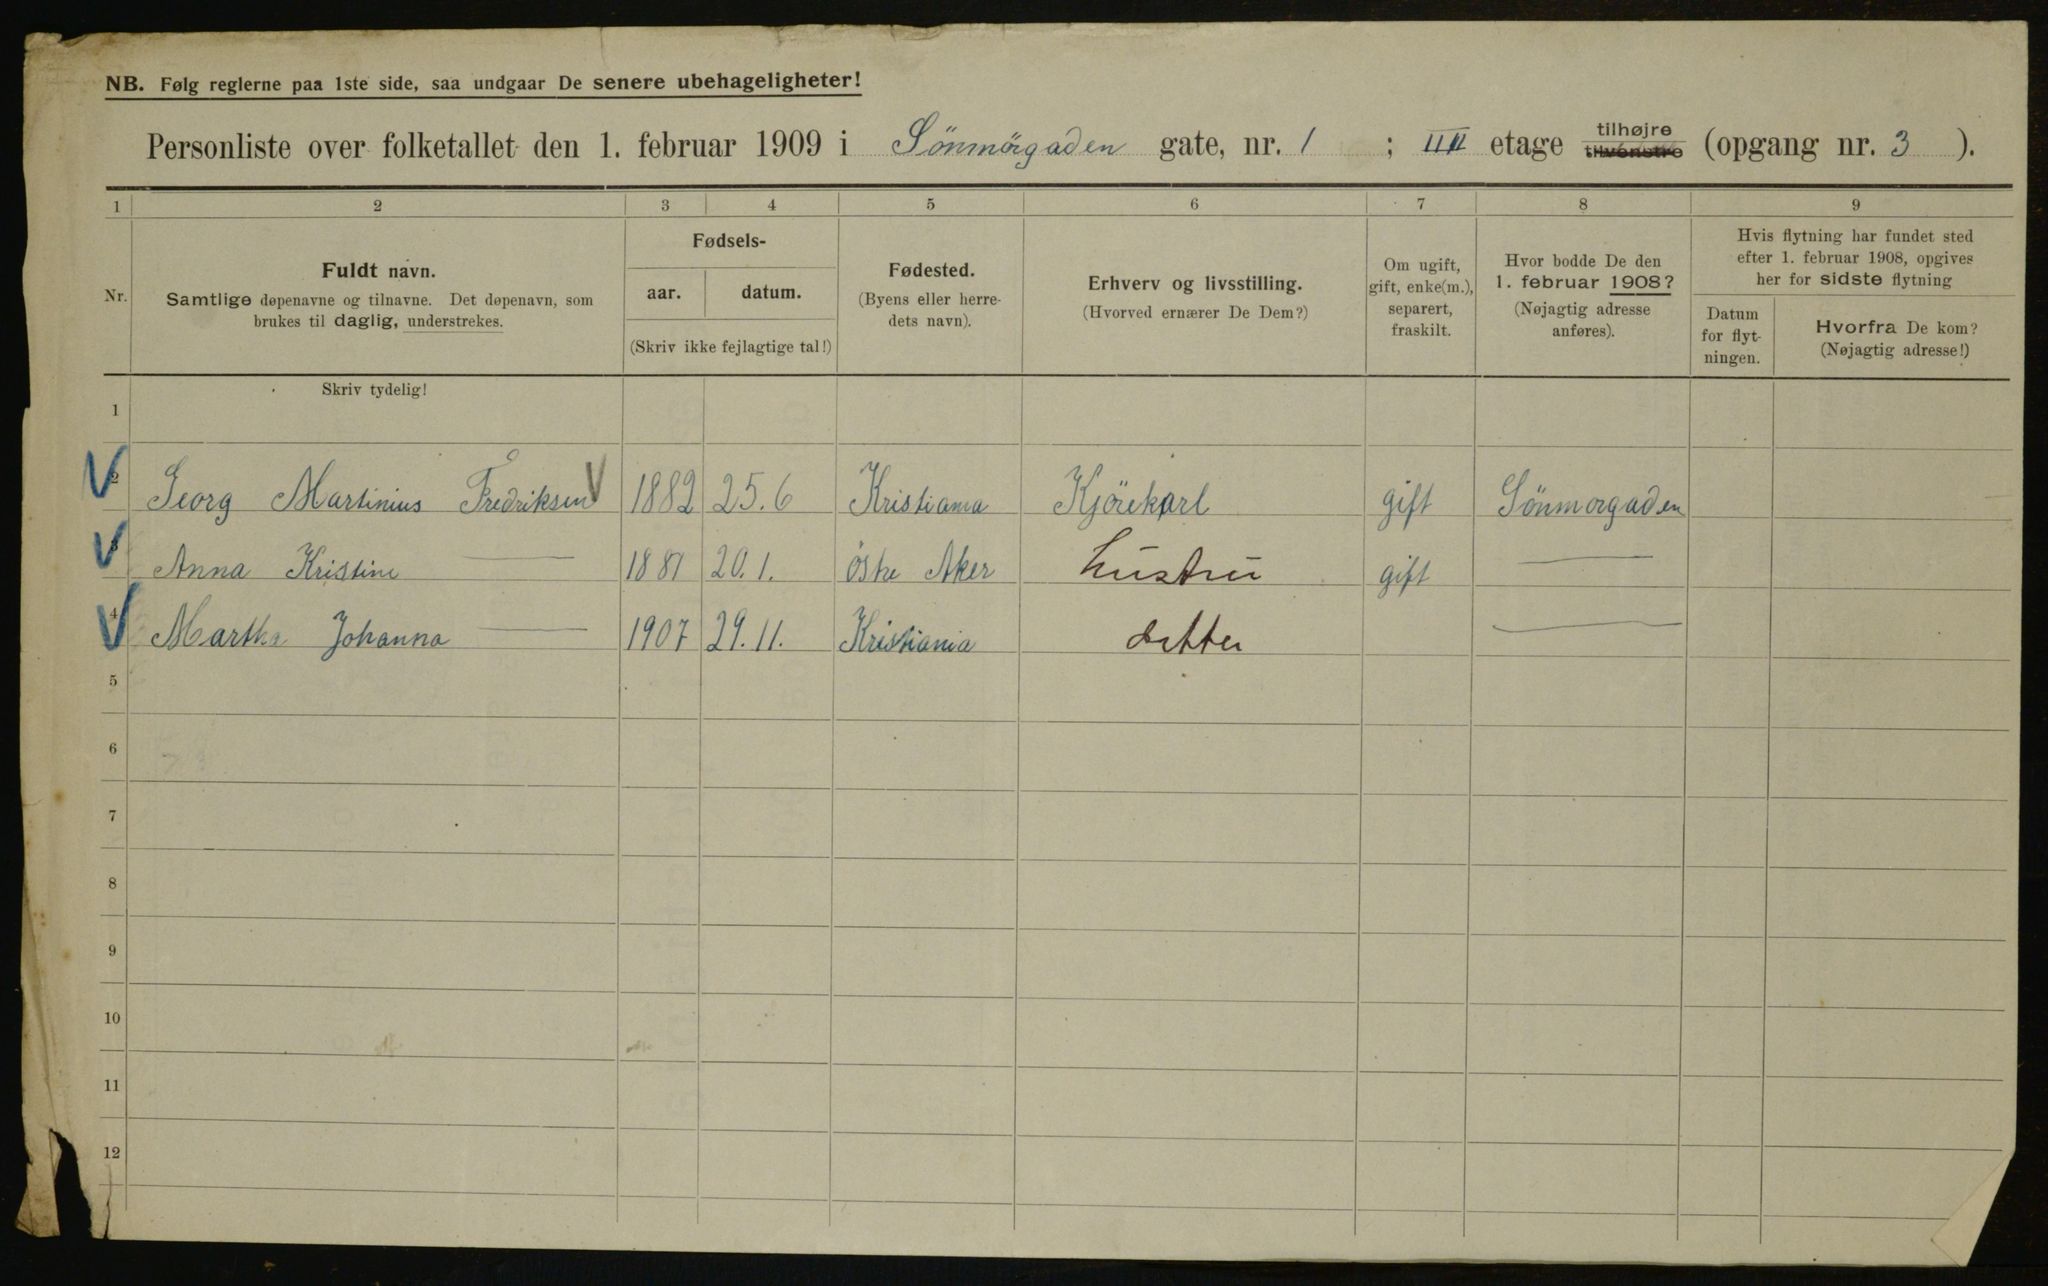 NB. Følg reglerne paa 1ste side, saa undgaar De senere ubehageligheter!
Personliste over folketallet den 1. februar 1909 i Sönmörgaden gate, nr. 1 ; III etage tilhøjre tilvenstre (opgang nr. 3 ).
1 2 3 4 5 6 7 8 9
Nr.
Fuldt navn.
Samtlige døpenavne og tilnavne. Det døpenavn, som
brukes til daglig, understrekes.
Fødsels-
aar. datum.
(Skriv ikke fejlagtige tal!)
Fødested.
(Byens eller herre-
dets navn).
Erhverv og livsstilling.
(Hvorved ernærer De Dem?)
Om ugift,
gift, enke(m.),
separert,
fraskilt.
Hvor bodde De den
1. februar 1908?
(Nøjagtig adresse
anføres).
Hvis flytning har fundet sted
efter 1. februar 1908, opgives
her for sidste flytning
Datum
for flyt-
ningen.
Hvorfra De kom?
(Nøjagtig adresse!)
Skriv tydelig!
1
2 Georg Martinius Fredriksen 1882 25.6 Kristiania Kjörekarl gift Sönmorgaden
3 Anna Kristine — 1881 20.1. östre Aker hustru gift —
4 Martha Johanna — 1907 29.11. Kristiania datter —
5
6
7
8
9
10
11
12